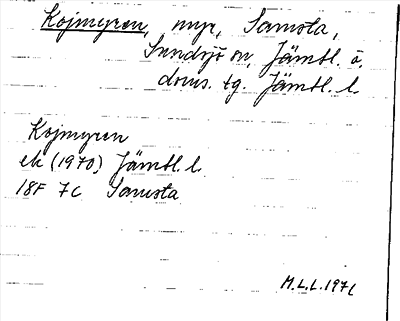 Kojmyren, myr, Samsta,
Sundsjö sn, Jämtl. ö.
doms. tg. Jämtl. l.
Kojmyren
ek (1970) Jämtl. l.
18F 7c Samsta
M.L.L. 1971